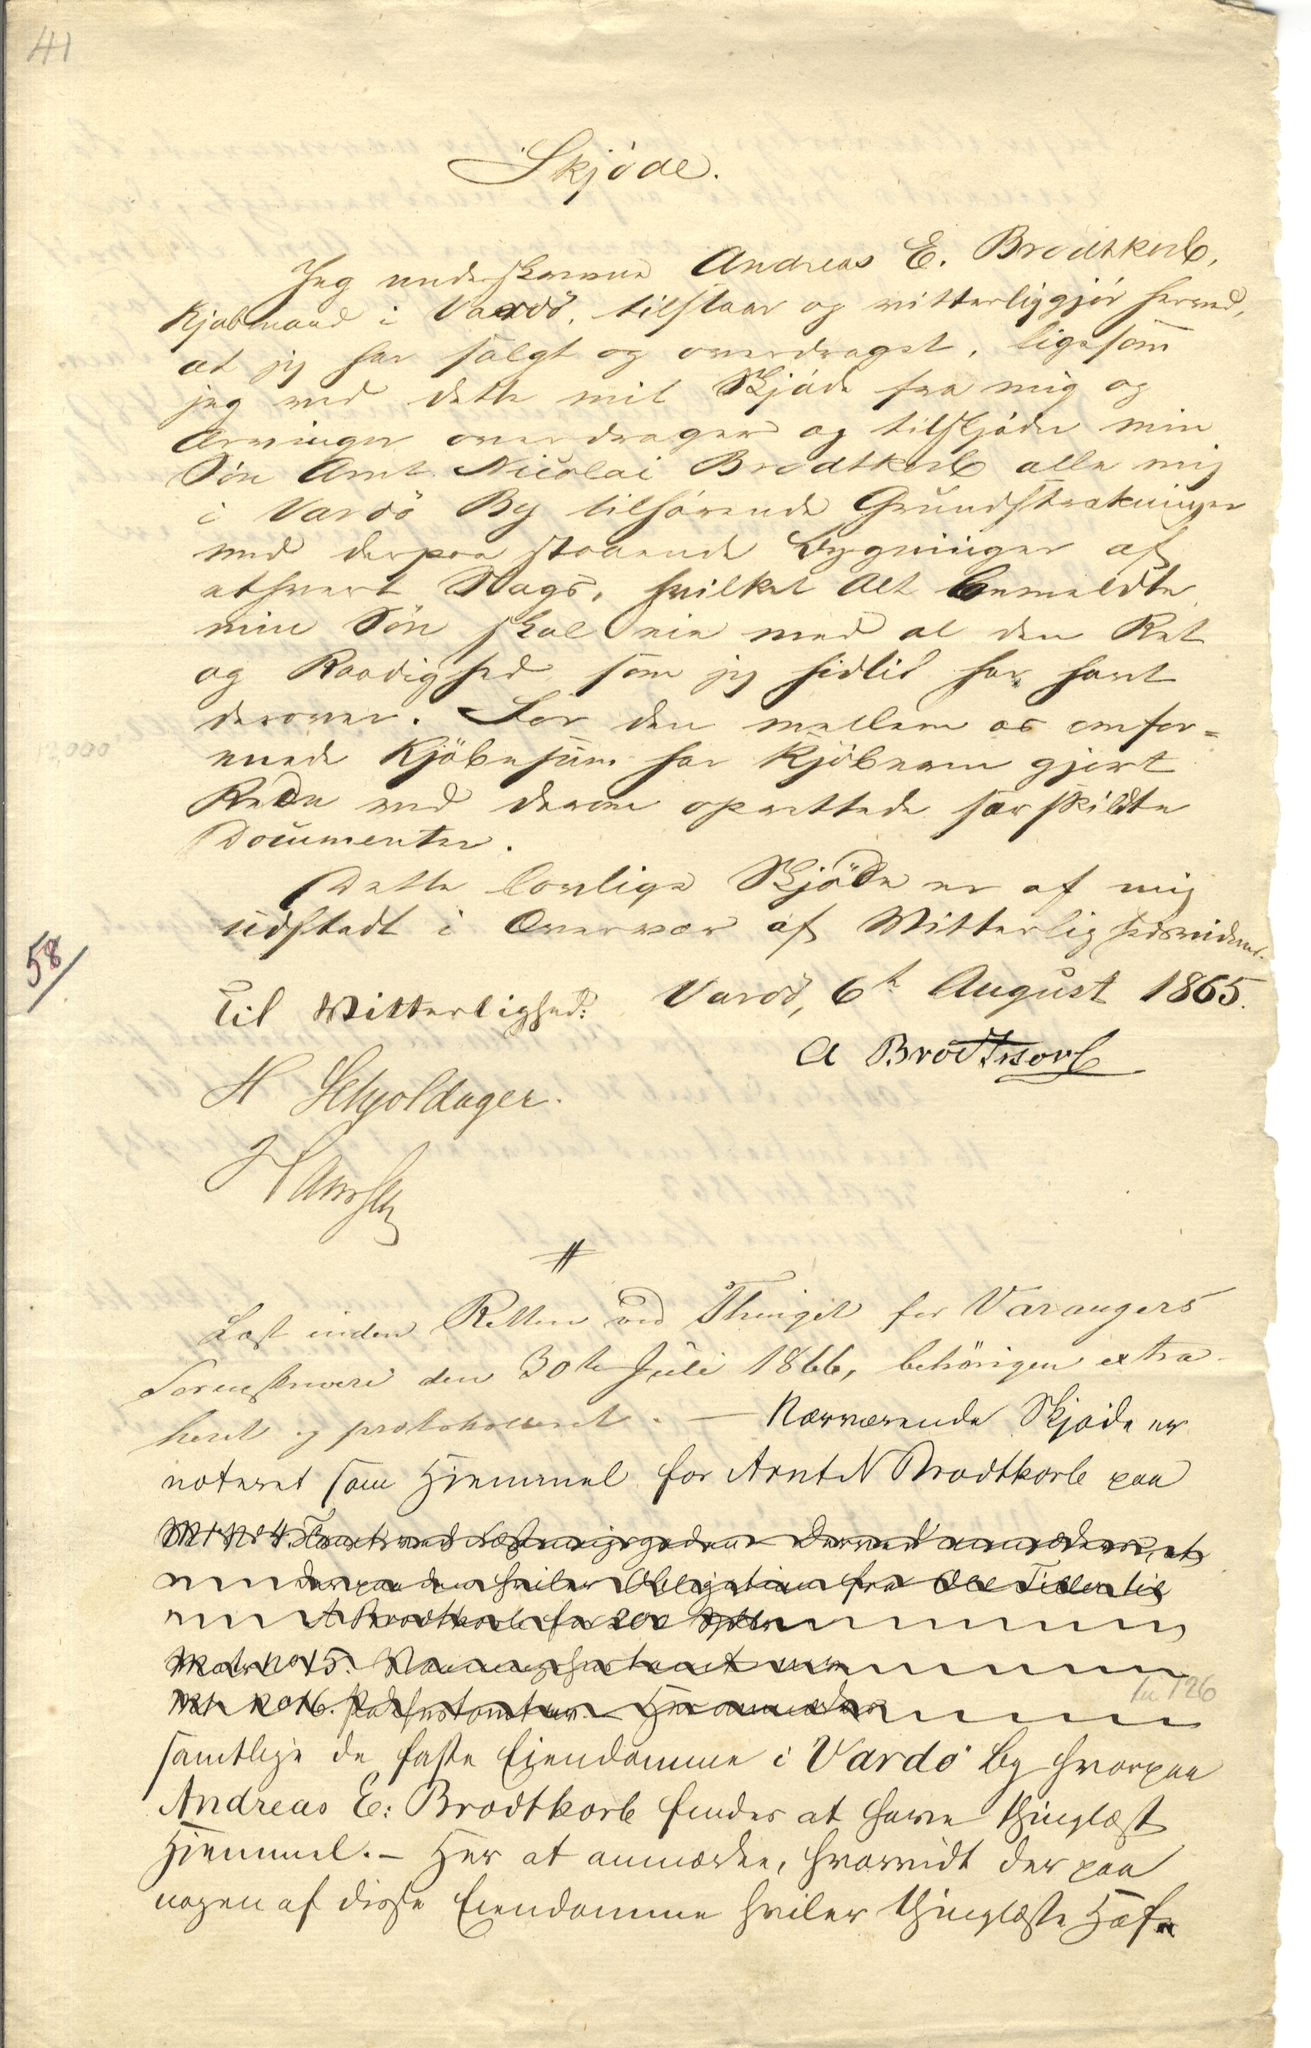 41
Skjøde.
Jeg underskrevne Andreas E. Brodtkorb,
Kjøbmand i Vardö, tilstaar og vitterliggjør herved,
at jeg har solgt og overdraget, ligesom
jeg ved dette mit Skjøde fra mig og
Arvinger overdrager og tilskjøder min
Søn Arnt Nicolai Brodtkorb alle mig
i Vardö By tilhørende Grundstrækninger
med derpaa staaende Bygninger af
ethvert Slags, hvilket Alt bemeldte
min Søn skal eie med al den Ret
og Raadighed som jeg hidtil har havt
derover. For den mellem os omfor-
enede Kjöbesum har Kjöberen gjort
Rede ved derom oprettede særskildte
Documenter.
Dette lovlige Skjöde er af mig
udstedt i Overvær af Vitterlighedsvidner.
58/
Vardö, 6te August 1865.
Til Vitterlighed:
A Brodtkorb
H Schjoldager.
Hansen
Læst inden Retten ved Thinget for Varangers
Sorenskriveri den 30te Juli 1866, behörigen extra-
heret og protokolleret. — Nærværende Skjøde er
noteret som Hjemmel for Arnt N Brodtkorb paa
derpaa den hviler Obligation fra Ole til
A Brodtkorb for 200 Spdlr
Matr No 15.
Mt No 16.
samtlige de faste Eiendomme i Vardö by hvorpaa
Andreas E: Brodtkorb findes at have thinglæst
Hjemmel. — Her at anmærke, hvorvidt der paa
nogen af disse Eiendomme hviler thinglæste Hæf